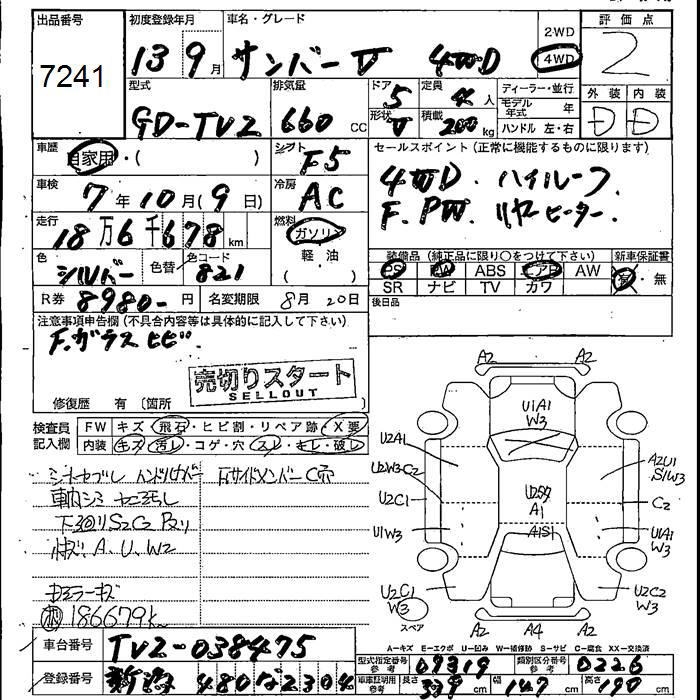 出品番号 初度登録年月 車名・グレード 2WD 評価点
7241 13 9月 サンバーV 4WD 4WD 2
型式 排気量 ドア 5 定員 4人 ディーラー・並行 外装 内装
モデル年式 年
GD-TV2 660 CC 形状 V 積載 200kg ハンドル 左・右 D D
車歴 自家用・( ) シフト F5 セールスポイント (正常に機能するものに限ります)
車検 7年10月(9日) 冷房 AC 4WD・ハイルーフ
走行 18万6千678km 燃料 ガソリン F.PW. リヤヒーター.
軽油
色 シルバー 色替 色コード 821 装備品 (純正品に限り○をつけて下さい) 新車保証書
PS PW ABS エアB AW 有・無
SR ナビ TV カワ
R券 8980-円 名変期限 8月20日 後日品
注意事項申告欄 (不具合内容等は具体的に記入して下さい)
F.ガラス ヒビ.
売切りスタート
SELLOUT
修復歴 有 〔箇所 〕
検査員記入欄 FW キズ・飛石・ヒビ割・リペア跡・X要
内装 キズ・汚レ・コゲ・穴・スレ・キレ・破レ
右サイドメンバーC穴
下廻りS2C2
A、U、W2
186679k
A2 A2
U1A1
W3
U2A1
U2W3C2
U2C1
U1W3
A2U1
S1W3
C2
U1A1
W3
A1
A1S1
U2C1
W3
U2C2
W3
スペア
A2 A4 A2
A-キズ E-エクボ U-凹み W-補修跡 S-サビ C-腐食 XX-交換済
車台番号 TV2-038475
型式指定番号 参考 09319 類別区分番号 参考 0226
登録番号 新潟 480 な 2304
車庫証明用 参考 長さ 339cm 幅 147cm 高さ 199cm